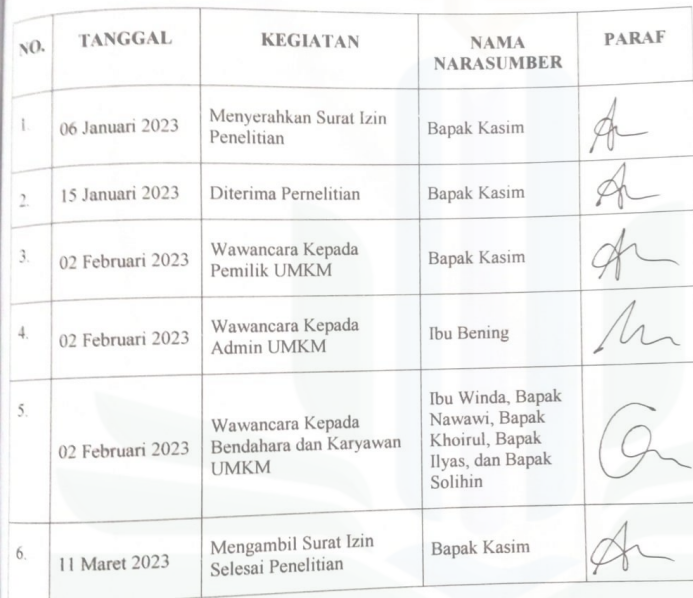 NO. TANGGAL KEGIATAN NAMA NARASUMBER PARAF
1. 06 Januari 2023 Menyerahkan Surat Izin Penelitian Bapak Kasim
2. 15 Januari 2023 Diterima Pernelitian Bapak Kasim
3. 02 Februari 2023 Wawancara Kepada Pemilik UMKM Bapak Kasim
4. 02 Februari 2023 Wawancara Kepada Admin UMKM Ibu Bening
5. 02 Februari 2023 Wawancara Kepada Bendahara dan Karyawan UMKM Ibu Winda, Bapak Nawawi, Bapak Khoirul, Bapak Ilyas, dan Bapak Solihin
6. 11 Maret 2023 Mengambil Surat Izin Selesai Penelitian Bapak Kasim